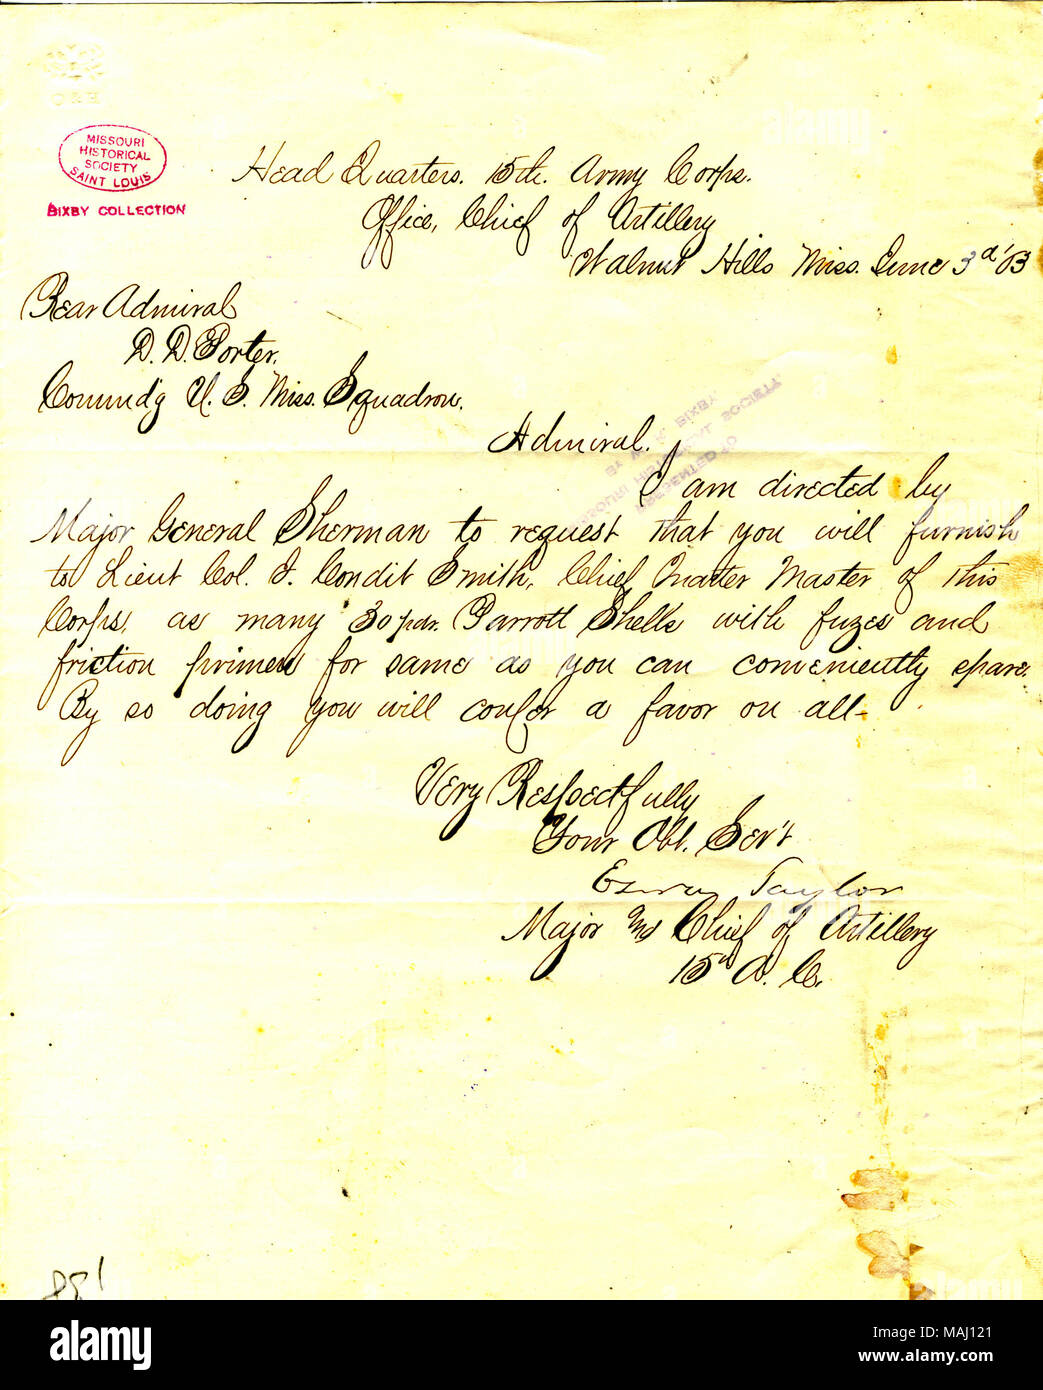 MISSOURI
HISTORICAL
SOCIETY
SAINT LOUIS
BIXBY COLLECTION
Head Quarters. 15th. Army Corps.
Office, Chief of Artillery
Walnut Hills Miss. June 3d '63
Rear Admiral
D. D. Porter.
Commd'g U. S. Miss. Squadron.
Admiral.
I am directed by
Major General Sherman to request that you will furnish
to Lieut Col. J. Condit Smith, Chief Quarter Master of this
Corps, as many 30 pdr. Parrott Shells with fuzes and
friction primers for same as you can conveniently spare.
By so doing you will confer a favor on all-
Very Respectfully
Your Obt. Serv't
Ezra Taylor
Major and Chief of Artillery
15th A. C.
PRESENTED TO
MISSOURI HISTORICAL SOCIETY
BY W. K. BIXBY
881
alamy
Image ID: MAJ121
www.alamy.com